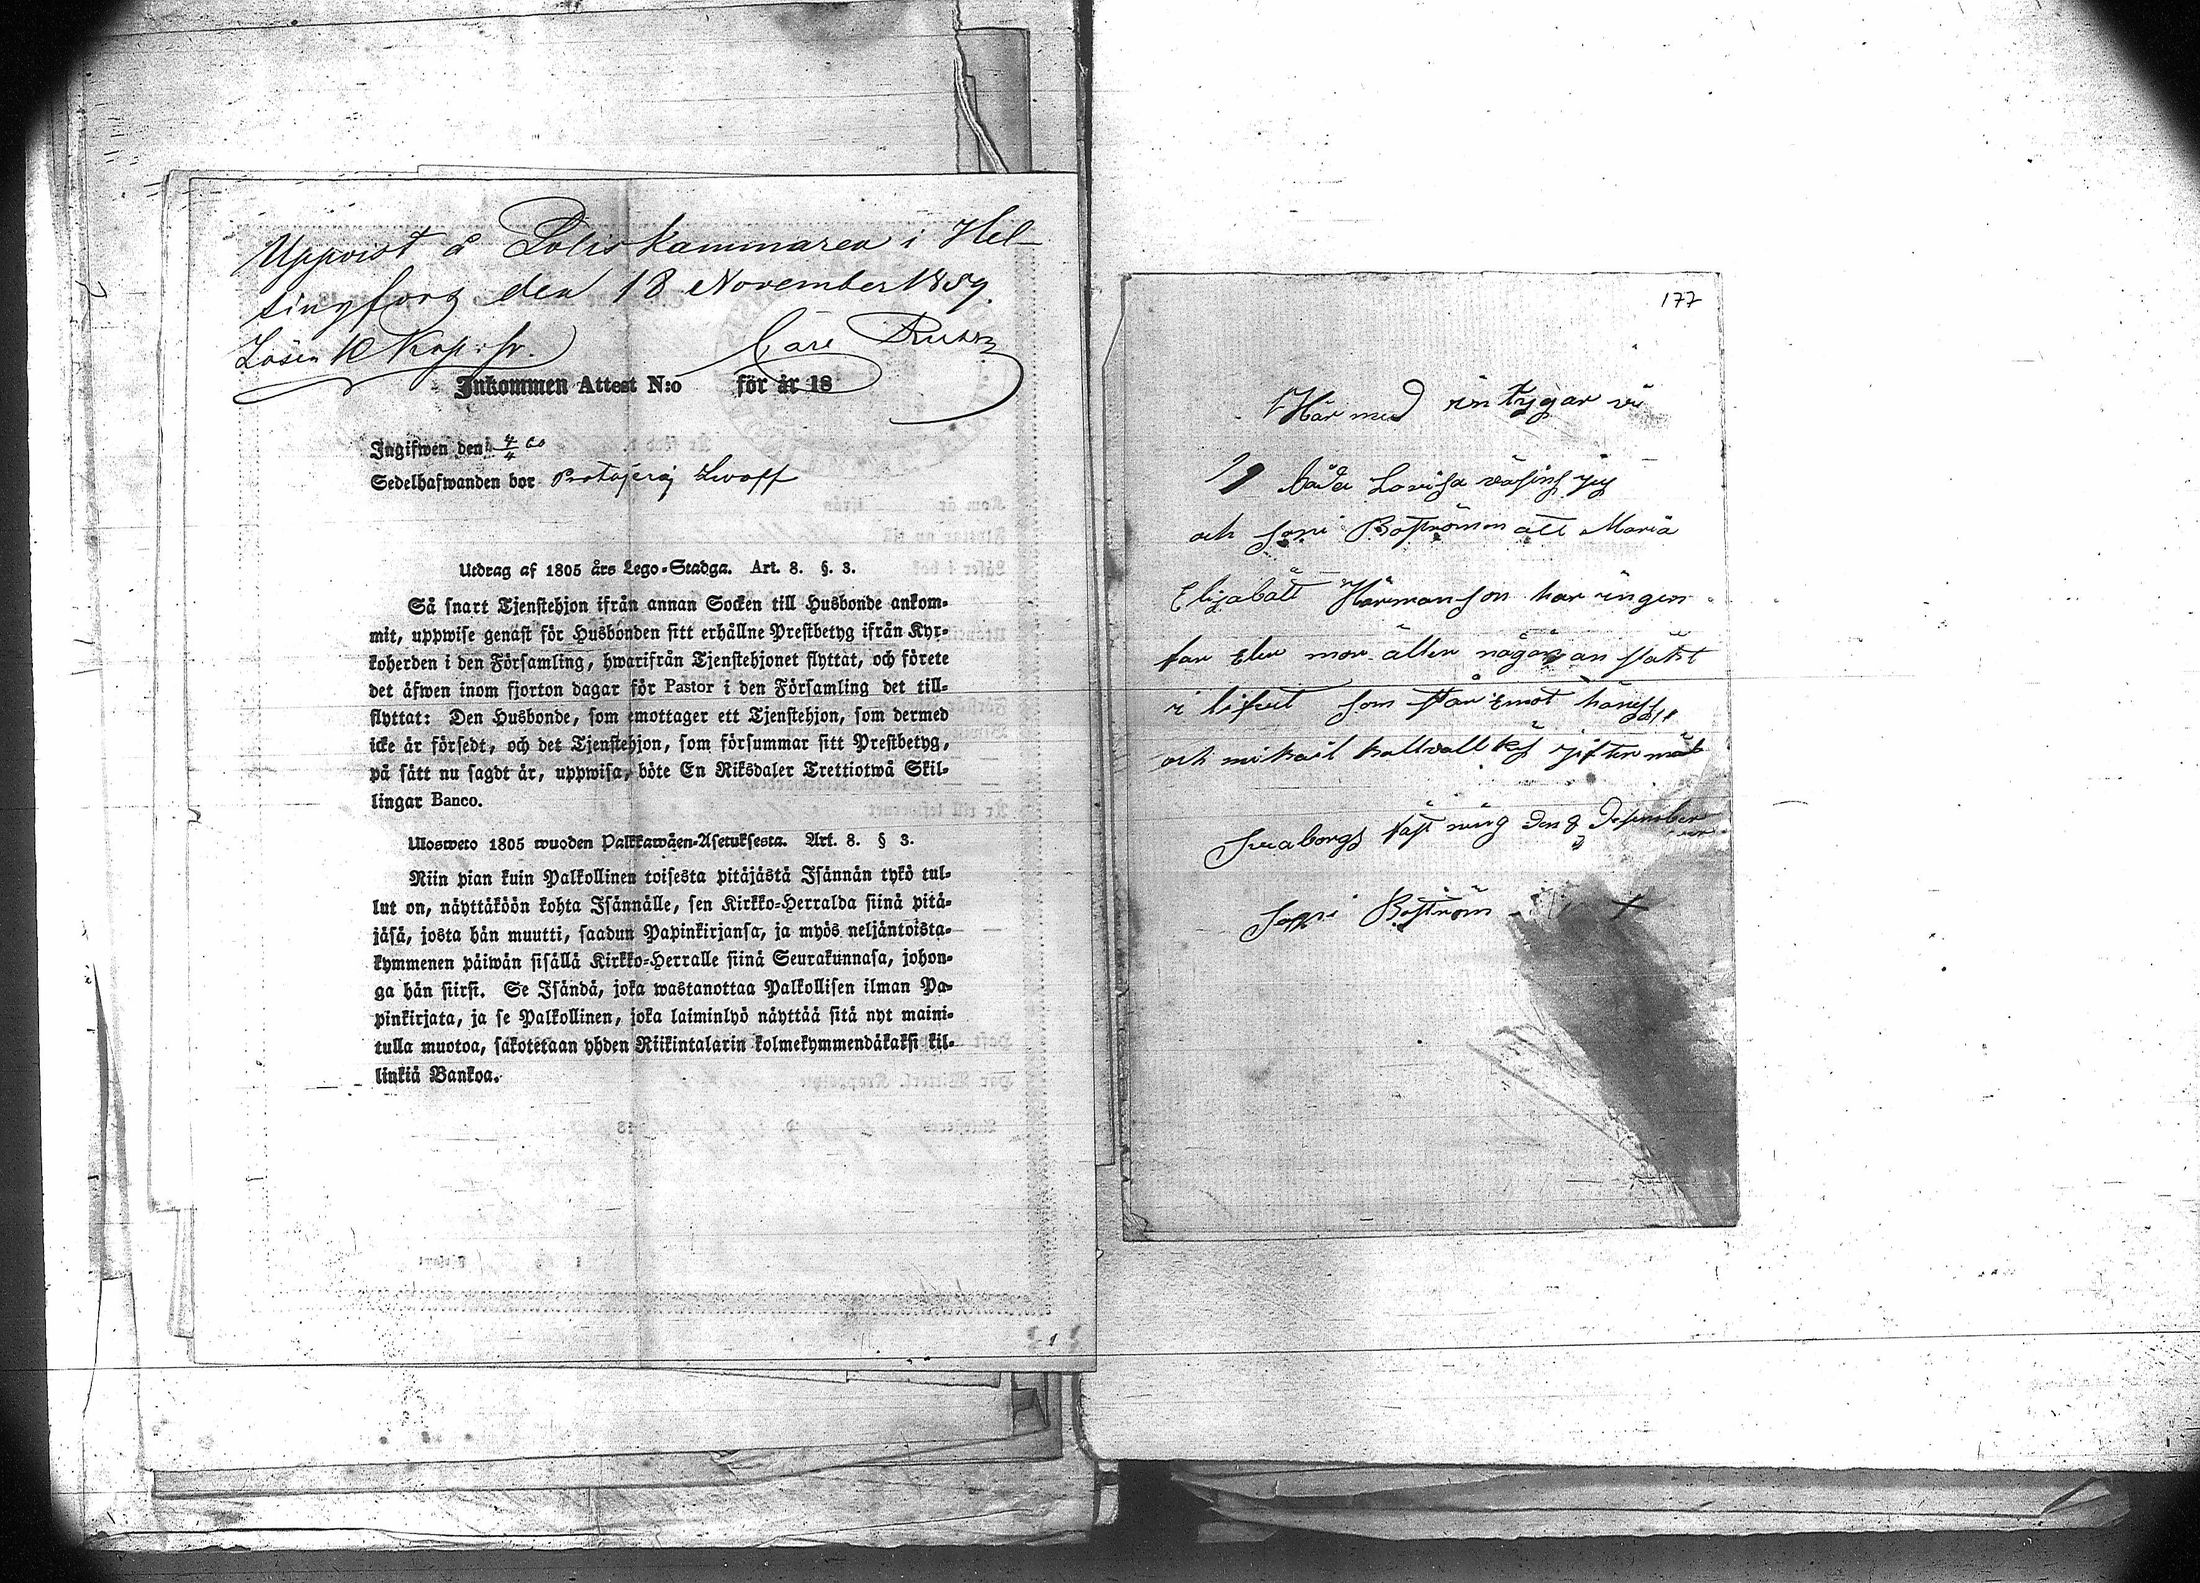 Uppvist å Poliskammaren i Hel-
singfors den 18 November 1859.
Lösen 10 Kop. Sr. Carl
Inkommen Attest N:o för år 18
Ingifwen den 4/4 60
Sedelhafwanden bor Protojerej Lwoff
Utdrag af 1805 års Lego-Stadga. Art. 8. §. 3.
Så snart Tjenstehjon ifrån annan Socken till Husbonde ankom-
mit, uppwise genast för Husbonden sitt erhållne Prestbetyg ifrån Kyr-
koherden i den Församling, hwarifrån Tjenstehjonet flyttat, och förete
det äfwen inom fjorton dagar för Pastor i den Församling det till-
flyttat: Den Husbonde, som emottager ett Tjenstehjon, som dermed
icke är försedt, och det Tjenstehjon, som försummar sitt Prestbetyg,
på sätt nu sagdt är, uppwisa, böte En Riksdaler Trettiotwå Skil-
lingar Banco.
Ulosweto 1805 wuoden Palkkawäen-Asetuksesta. Art. 8. § 3.
Niin pian kuin Palkollinen toisesta pitäjästä Isännän tykö tul-
lut on, näyttäköön kohta Isännälle, sen Kirkko-Herralda siinä pitä-
jäsä, josta hän muutti, saadun Papinkirjansa, ja myös neljäntoista-
kymmenen päiwän sisällä Kirkko-Herralle siinä Seurakunnasa, johon-
ga hän siirsi. Se Isändä, joka wastanottaa Palkollisen ilman Pa-
pinkirjata, ja se Palkollinen, joka laiminlyö näyttää sitä nyt maini-
tulla muotoa, sakotetaan yhden Riikintalarin kolmekymmendäkaksi kil-
linkiä Bankoa.
177
Här med intygar vi
båda Lovisa
och Soppi Boströmon att Maria
Elizabätt Härmanson har ingen
far Eler mor äller någåran släkt
i lifvet som står Emot häness
och mikael jiftermål
Sveaborgs fästning Den 8 Desember
Soppi Boström +